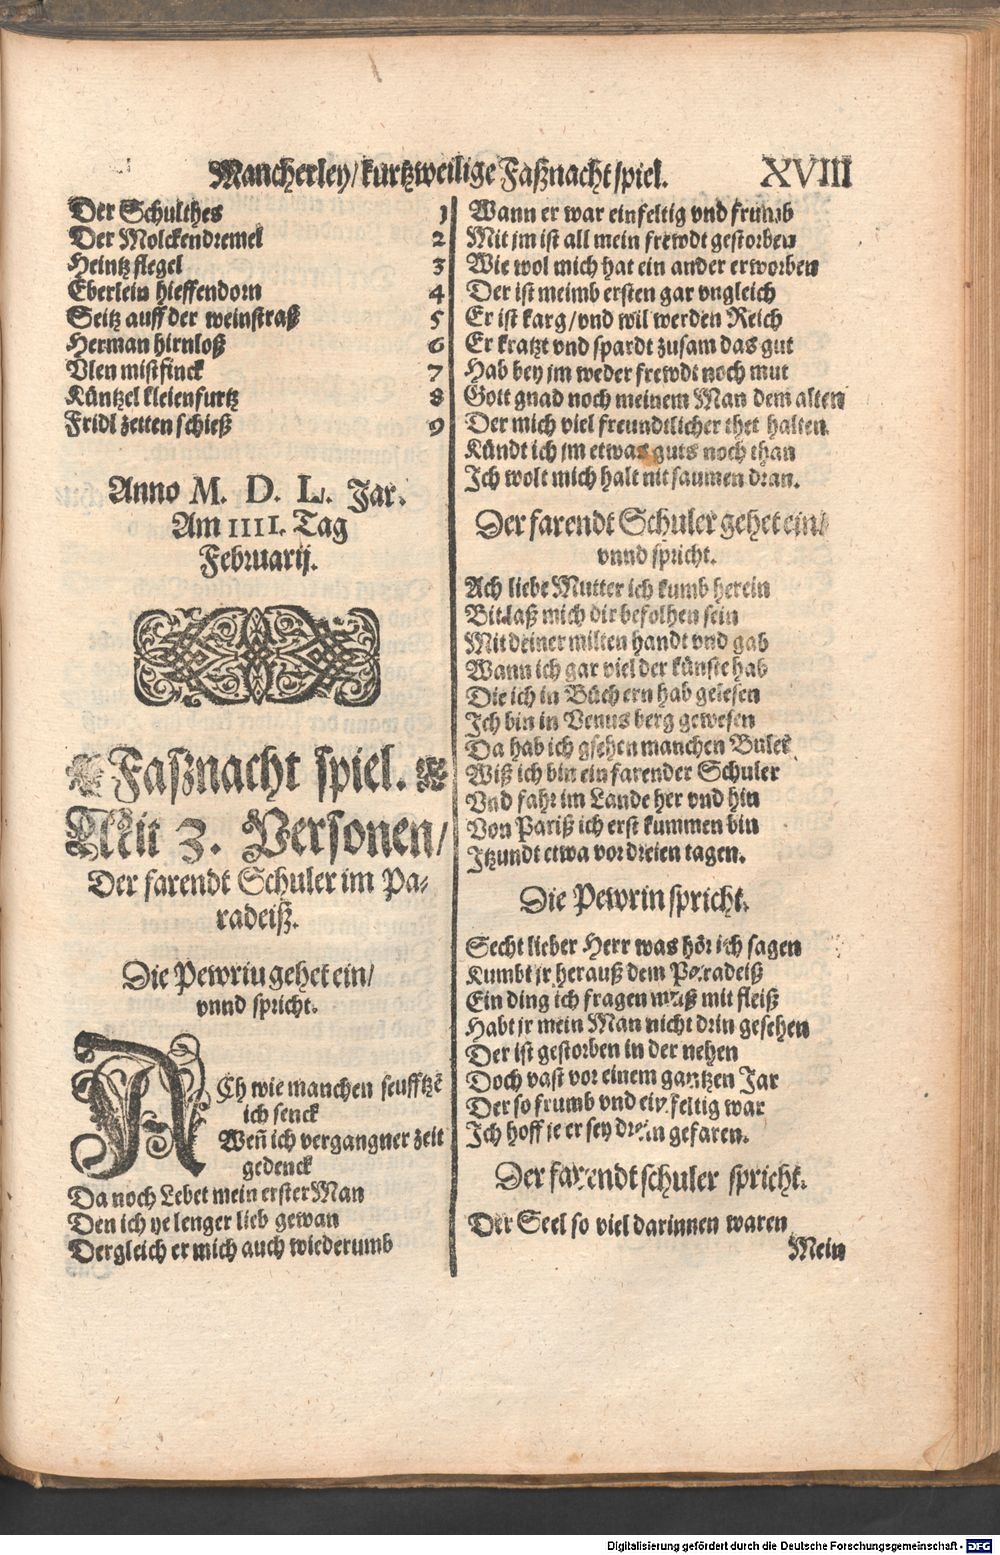 Mancherley/ kurtzweilige Faßnacht spiel. XVIII
Der Schulthes 1
Der Molckendremel 2
Heintz flegel 3
Eberlein hieffendorn 4
Seitz auff der weinstraß 5
Herman hirnloß 6
Vlen mistfinck 7
Küntzel kleienfurtz 8
Fridl zettenschieß 9
Anno M. D. L. Jar.
Am IIII. Tag
Februarij.
Faßnacht spiel.
Mit 3. Personen/
Der farendt Schuler im Pa-
radeiß.
Die Pewrin gehet ein/
vnnd spricht.
ACh wie manchen seufftzē
ich senck
Weñ ich vergangner zeit
gedenck
Da noch Lebet mein erster Man
Den ich ye lenger lieb gewan
Dergleich er mich auch wiederumb
Wann er war einfeltig vnd frumb
Mit jm ist all mein frewdt gestorben
Wie wol mich hat ein ander erworben
Der ist meimb ersten gar vngleich
Er ist karg/ vnd wil werden Reich
Er kratzt vnd spardt zusam das gut
Hab bey jm weder frewdt noch mut
Gott gnad noch meinem Man dem alten
Der mich viel freundtlicher thet halten
Kündt ich jm etwas guts noch than
Ich wolt mich halt nit saumen dran.
Der farendt Schuler gehet ein/
vnnd spricht.
Ach liebe Mutter ich kumb herein
Bit laß mich dir befolhen sein
Mit deiner milten handt vnd gab
Wann ich gar viel der künste hab
Die ich in Büchern hab gelesen
Ich bin in Venus berg gewesen
Da hab ich gsehen manchen Buler
Wiß ich bin ein farender Schuler
Vnd fahr im Lande her vnd hin
Von Pariß ich erst kummen bin
Itzundt etwa vor dreien tagen.
Die Pewrin spricht.
Secht lieber Herr was hör ich sagen
Kumbt jr herauß dem Paradeiß
Ein ding ich fragen muß mit fleiß
Habt jr mein Man nicht drin gesehen
Der ist gestorben in der nehen
Doch vast vor einem gantzen Jar
Der so frumb vnd einfeltig war
Ich hoff je er sey drein gefaren.
Der farendt schuler spricht.
Der Seel so viel darinnen waren
Mein
Digitalisierung gefördert durch die Deutsche Forschungsgemeinschaft - DFG